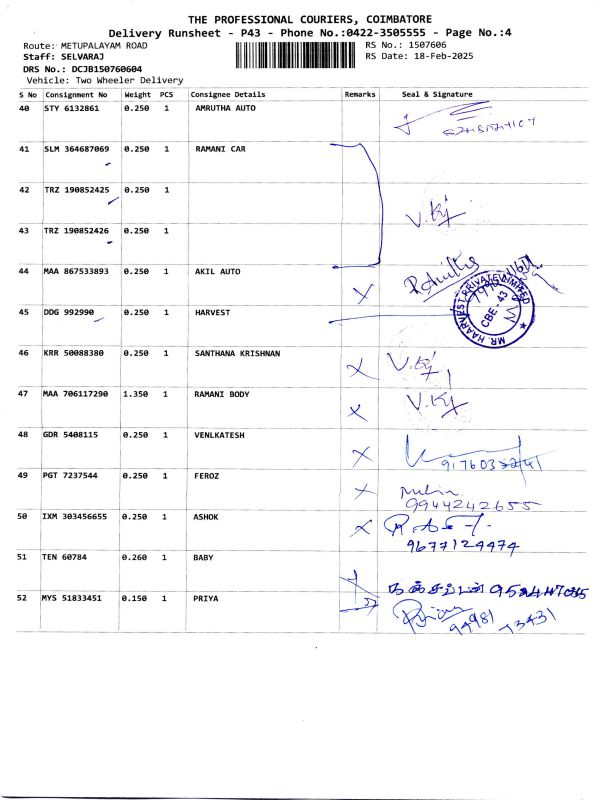 THE PROFESSIONAL COURIERS, COIMBATORE
Delivery Runsheet - P43 - Phone No.:0422-3505555 - Page No.:4
Route: METUPALAYAM ROAD RS No.: 1507606
Staff: SELVARAJ RS Date: 18-Feb-2025
DRS No.: DCJB150760604
Vehicle: Two Wheeler Delivery
S No Consignment No Weight PCS Consignee Details Remarks Seal & Signature
40 STY 6132861 0.250 1 AMRUTHA AUTO
41 SLM 364687069 0.250 1 RAMANI CAR
42 TRZ 190852425 0.250 1
V.Ky
43 TRZ 190852426 0.250 1
44 MAA 867533893 0.250 1 AKIL AUTO X
45 DDG 992990 0.250 1 HARVEST
MR. HAARVEST PRIVATE LIMITED
CBE - 43
46 KRR 50088380 0.250 1 SANTHANA KRISHNAN X V.Ky
47 MAA 706117290 1.350 1 RAMANI BODY X V.Ky
48 GDR 5408115 0.250 1 VENLKATESH X
49 PGT 7237544 0.250 1 FEROZ X
9944242655
50 IXM 303456655 0.250 1 ASHOK X
9677124474
51 TEN 60784 0.260 1 BABY
52 MYS 51833451 0.150 1 PRIYA Priya
99981 73431